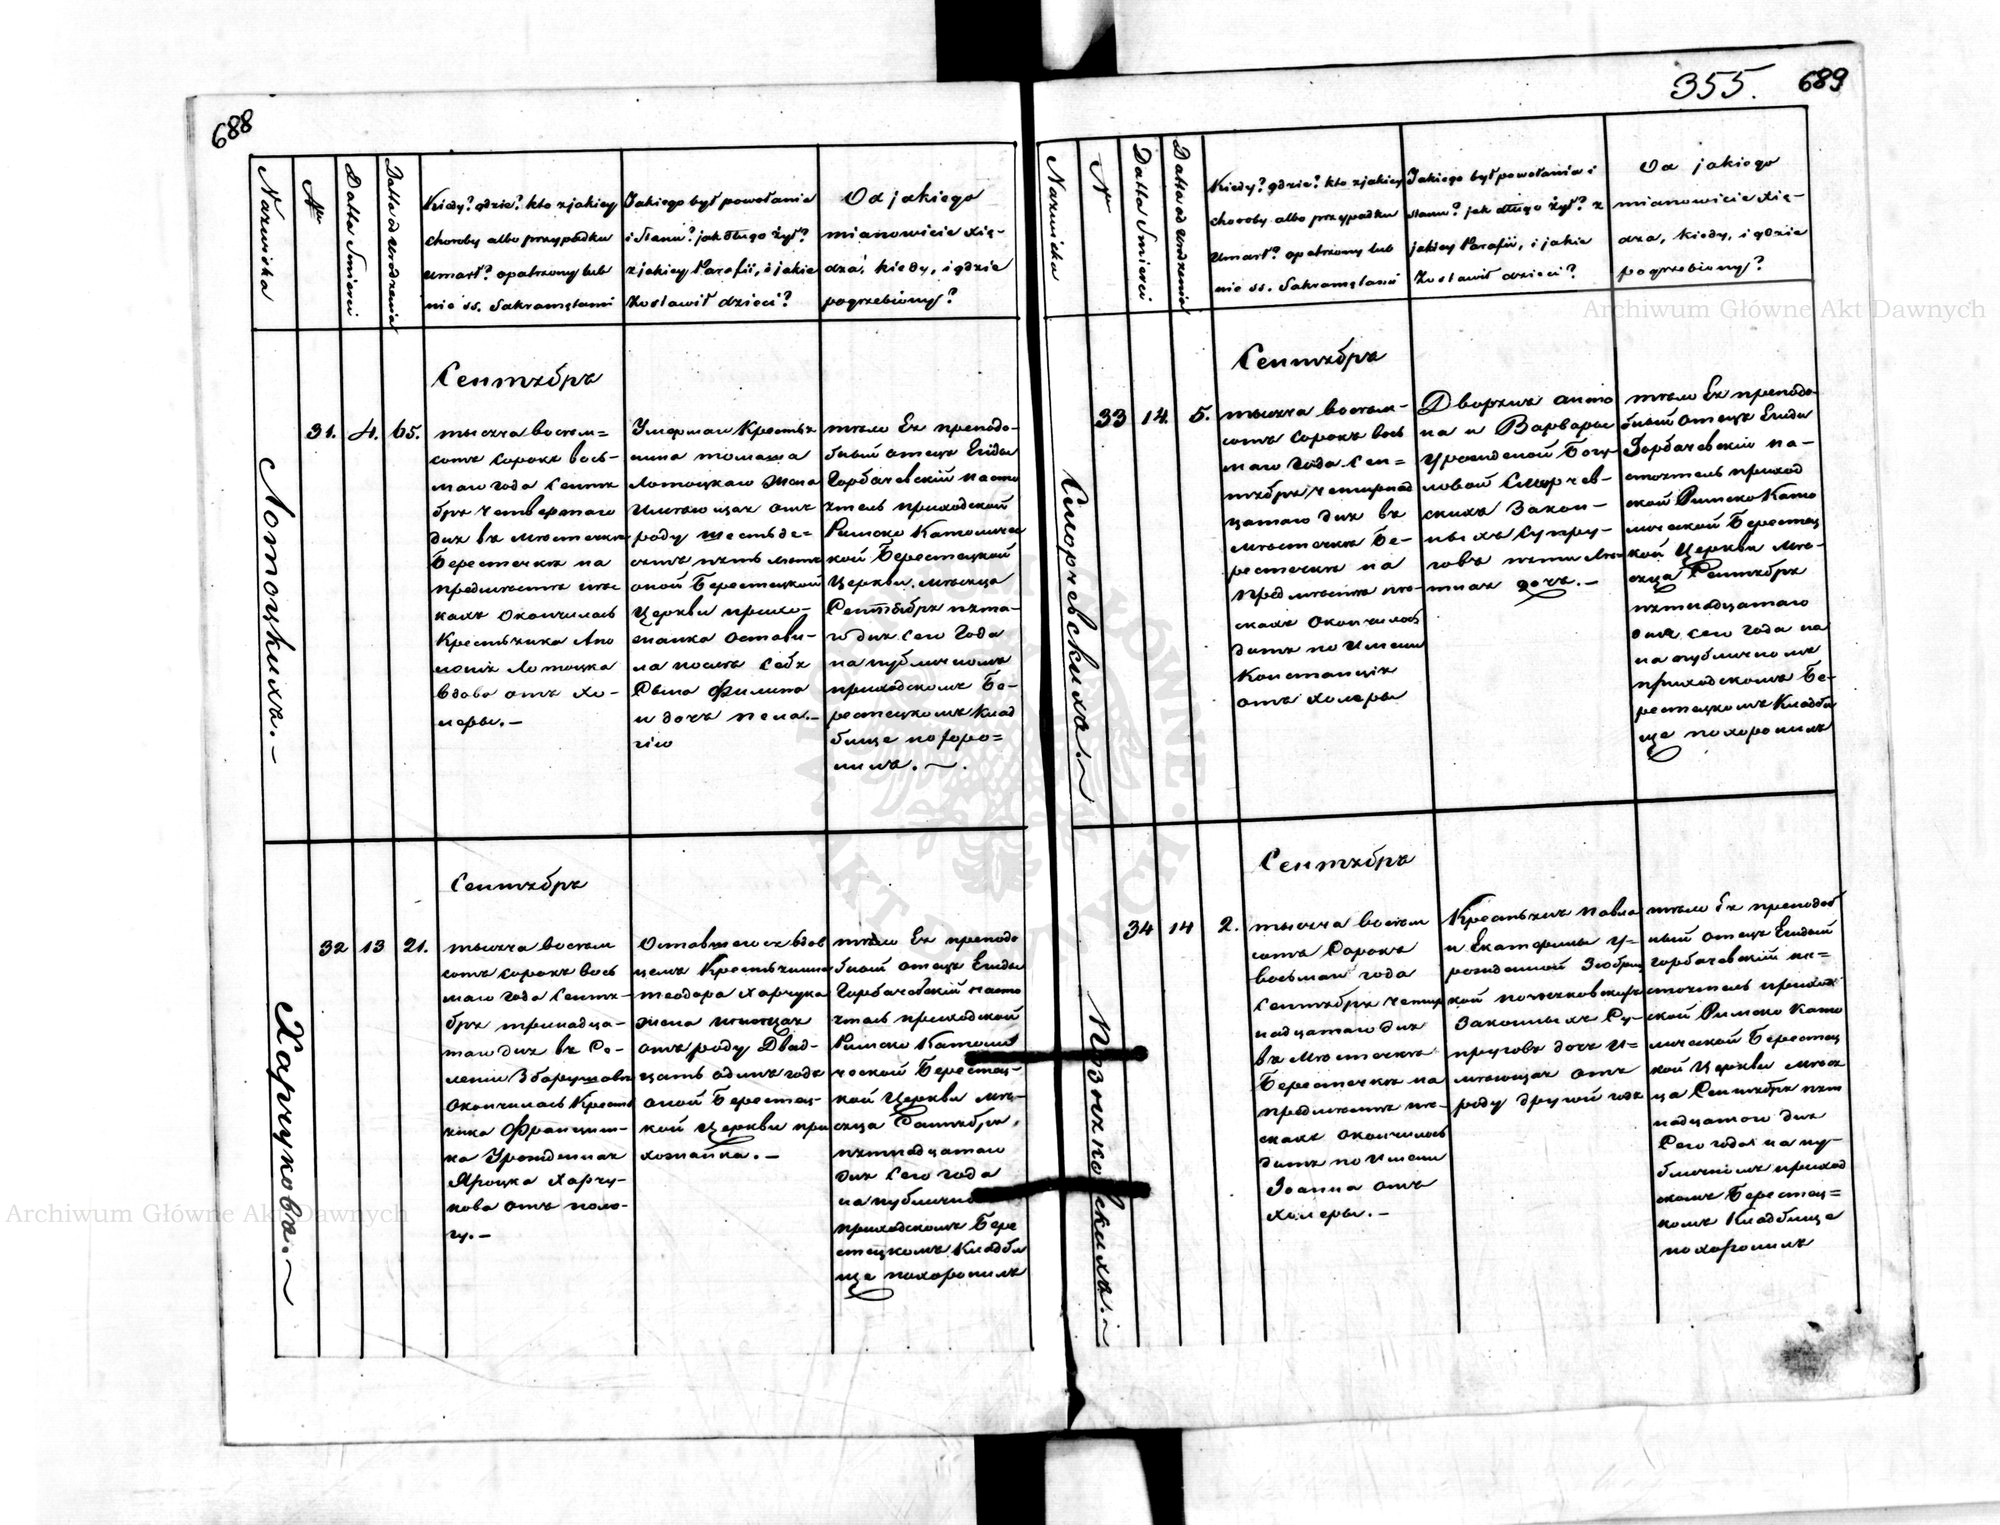 688
Nazwiska
Nr
Datta Śmierci
Datta od urodzenia
Kiedy? gdzie? kto z jakiey
choroby albo przypadku
umarł? opatrzony lub
nie ss. Sakramętami
Jakiego był powołania
i Stanu? jak długo żył?
z jakiey Parafii, i jakie
Zostawił dzieci?
Od jakiego
mianowicie Xię-
dza, kiedy, i gdzie
pogrzebiony?
Лотоцкихъ.-
31.
4.
65.
Сентября
тысяча восем=
сотъ сорокъ вось-
маго года Сентя
бря Четвертаго
дня въ мѣстечкѣ
Берестечкѣ на
предмѣстьѣ пѣс
кахъ окончилась
Крестьянка Апо
лонія Лотоцка
вдова отъ хо-
леры.-
Умершаго Крестья
нина томаша
Лотоцкаго жена
Имѣющая отъ
роду шестьде-
сятъ пять лѣтъ
оной Берестецкой
Церкви прихо-
жанка остави-
ла послѣ Себя
Сына Филипа
и дочь пела.-
гію
тѣло Ея преподо-
бный отецъ Егидій
Горбачевскій насто
ятель приходской
Римско Католичес
кой Берестецкой
Церкви, мѣсяца
Сентября пята-
го дня сего Года
на публичномъ
приходскомъ Бе-
рестецкомъ Клад
бище похоро=
нилъ.
Харчукова.-
32
13
21.
Сентября
тысяча восем
сотъ сорокъ вось
маго года Сентя-
бря тринадца-
таго дня въ Се-
леніи
окончилась Кресть
янка Францит-
ка Урожденная
Яроцка Харчу-
кова отъ поло-
гу.-
Оставшегося вдов
цемъ Крестьянина
теодора Харчука
жена имѣющая
отъ роду Двад-
цать одинъ годъ
оной Берестец-
кой Церкви при
хожанка.-
тѣло Ея преподо
бный отецъ Егидій
Горбачевскій насто
ятель приходской
Римско Католи
ческой Берестец-
кой Церкви мѣ-
сяца Сентября,
пятнадцатаго
дня Сего года
на публично
приходскомъ Бере
стецкомъ Кладби
ще похоронилъ
355.
689
Nazwiska
Nr
Datta Śmierci
Datta od urodzenia
Kiedy? gdzie? kto z jakiey
choroby albo przypadku
umarł? opatrzony lub
nie ss. Sakramętami
Jakiego był powołania i
stanu? jak długo żył? z
jakiey Parafii, i jakie
Zostawił dzieci?
Od jakiego
mianowicie Xię-
dza, kiedy, i gdzie
pogrzebiony?
Сморчевскихъ.
33
14.
5.
Сентября
тысяча восем-
сотъ сорокъ вось
маго года Сен=
тября четырнад
цатаго дня въ
мѣстечкѣ Бе-
рестечкѣ на
предмѣстьѣ пѣ-
скахъ окончилось
дитя по Имени
Констанція
отъ холеры
Дворянъ анто
на и Варвары
Урожденой Богу-
ловой Сморчев-
скихъ Закон-
ныхъ Супру-
говъ пяти лѣ-
тная дочь.-
тѣло Ея преподо-
бный отецъ Егидій
Горбачевскій на-
стоятель приход
ской Римско Като
лической Берестец
кой Церкви мѣ-
сяца Сентября
пятнадцатаго
дня сего года на
на публичномъ
приходскомъ Бе-
рестецкомъ Кладби
ще похоронилъ
34
14
2.
Сентября
тысяча восем
сотъ Сорокъ
восьмаго года
Сентября четыр
надцатаго дня
въ Мѣстечкѣ
Берестечкѣ на
предмѣстьѣ пѣ-
скахъ окончилось
дитя по Имени
Іоанна отъ
холеры.-
Крестьянъ Павла
и Екатерины У-
рожденной
кой
Законныхъ Су-
пруговъ дочь И=
мѣющая отъ
роду другой годъ
тѣло Ея преподоб
ный отецъ Егидій
горбачевскій на=
стоятель приход
ской Римско Като
лической Берестец
кой Церкви мѣся
ца Сентября пят
надцатого дня
Сего года на пу-
бличномъ приход
скомъ Берестец=
комъ Кладбище
похоронилъ
Archiwum Główne Akt Dawnych
Archiwum Główne Akt Dawnych